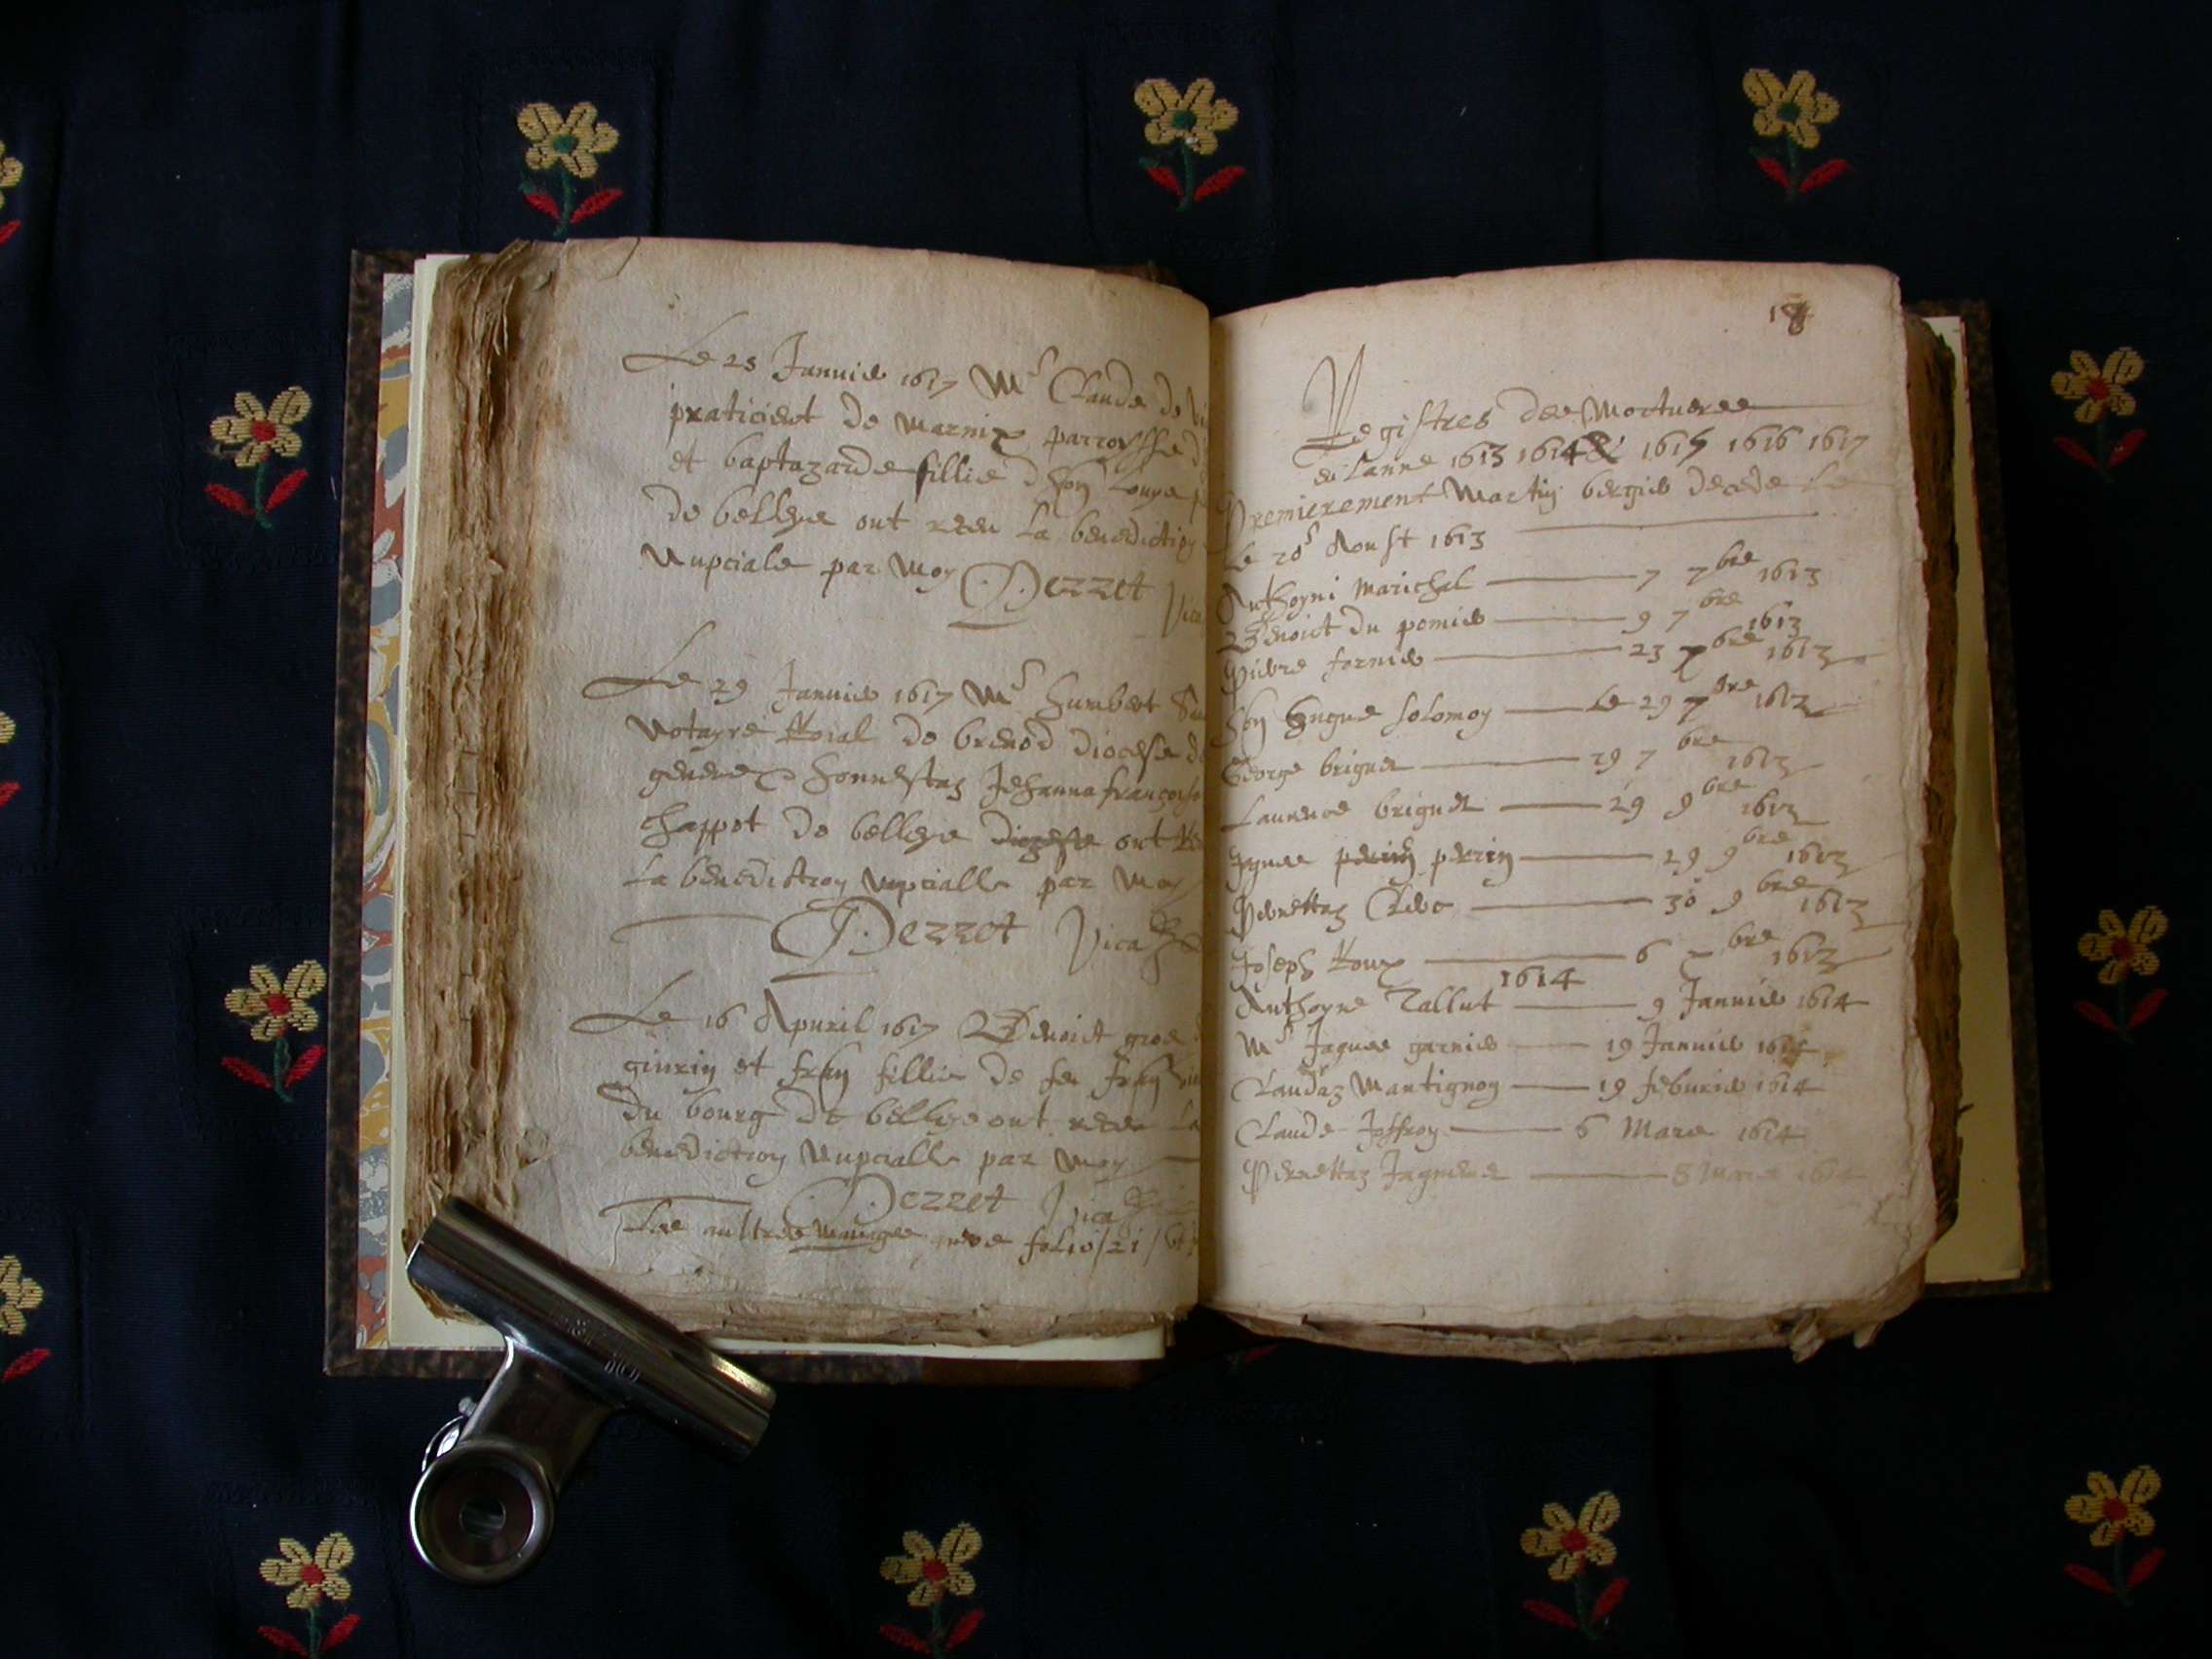 Le 25 Januier 1617 Mr Claude de
praticient de marnix parroisse
et baptazarde fillie d hon Louys
de belleys ont receu la benediction
Nupciale par moy Dezzet Vica
Le 29 Januier 1617 Mr humbert
Notayre Roial de brenod diocese de
geneve honnestaz Jehanna francoise
chappot de belleys diozese ont
La benediction nupcialle par moy
Dezzet Vica
Le 16 Apuril 1617 Benoict gros
et fillie de feu
Du bourg de belleys ont receu La
benediction Nupcialle par moy
Dezzet Vica
Les aultres mariages folio 21
18
Registres des Mortueres
de Lanne 1613 1614 & 1615 1616 1617
Premierement Martin bergier decede Le
Le 20 Aoust 1613
Anthoyni marichal 7 7bre 1613
Benoict du pomier 9 7bre 1613
Pierre fornier 23 7bre 1613
hon hugue solomon Le 29 7bre 1613
George briguet 29 7bre 1613
Laurence briguet 29 9bre 1613
perin perrin 29 9bre 1613
Pernettaz Clerc 30 9bre 1613
Joseph Roux 6 bre 1613
1614
Anthoyne Tallut 9 Januier 1614
Mr Jaques garnier 19 Januier 1614
Claudaz Martignon 19 feburier 1614
Claude Joffroy 6 Mars 1614
Pernettaz Jaquene 8 Mars 1614